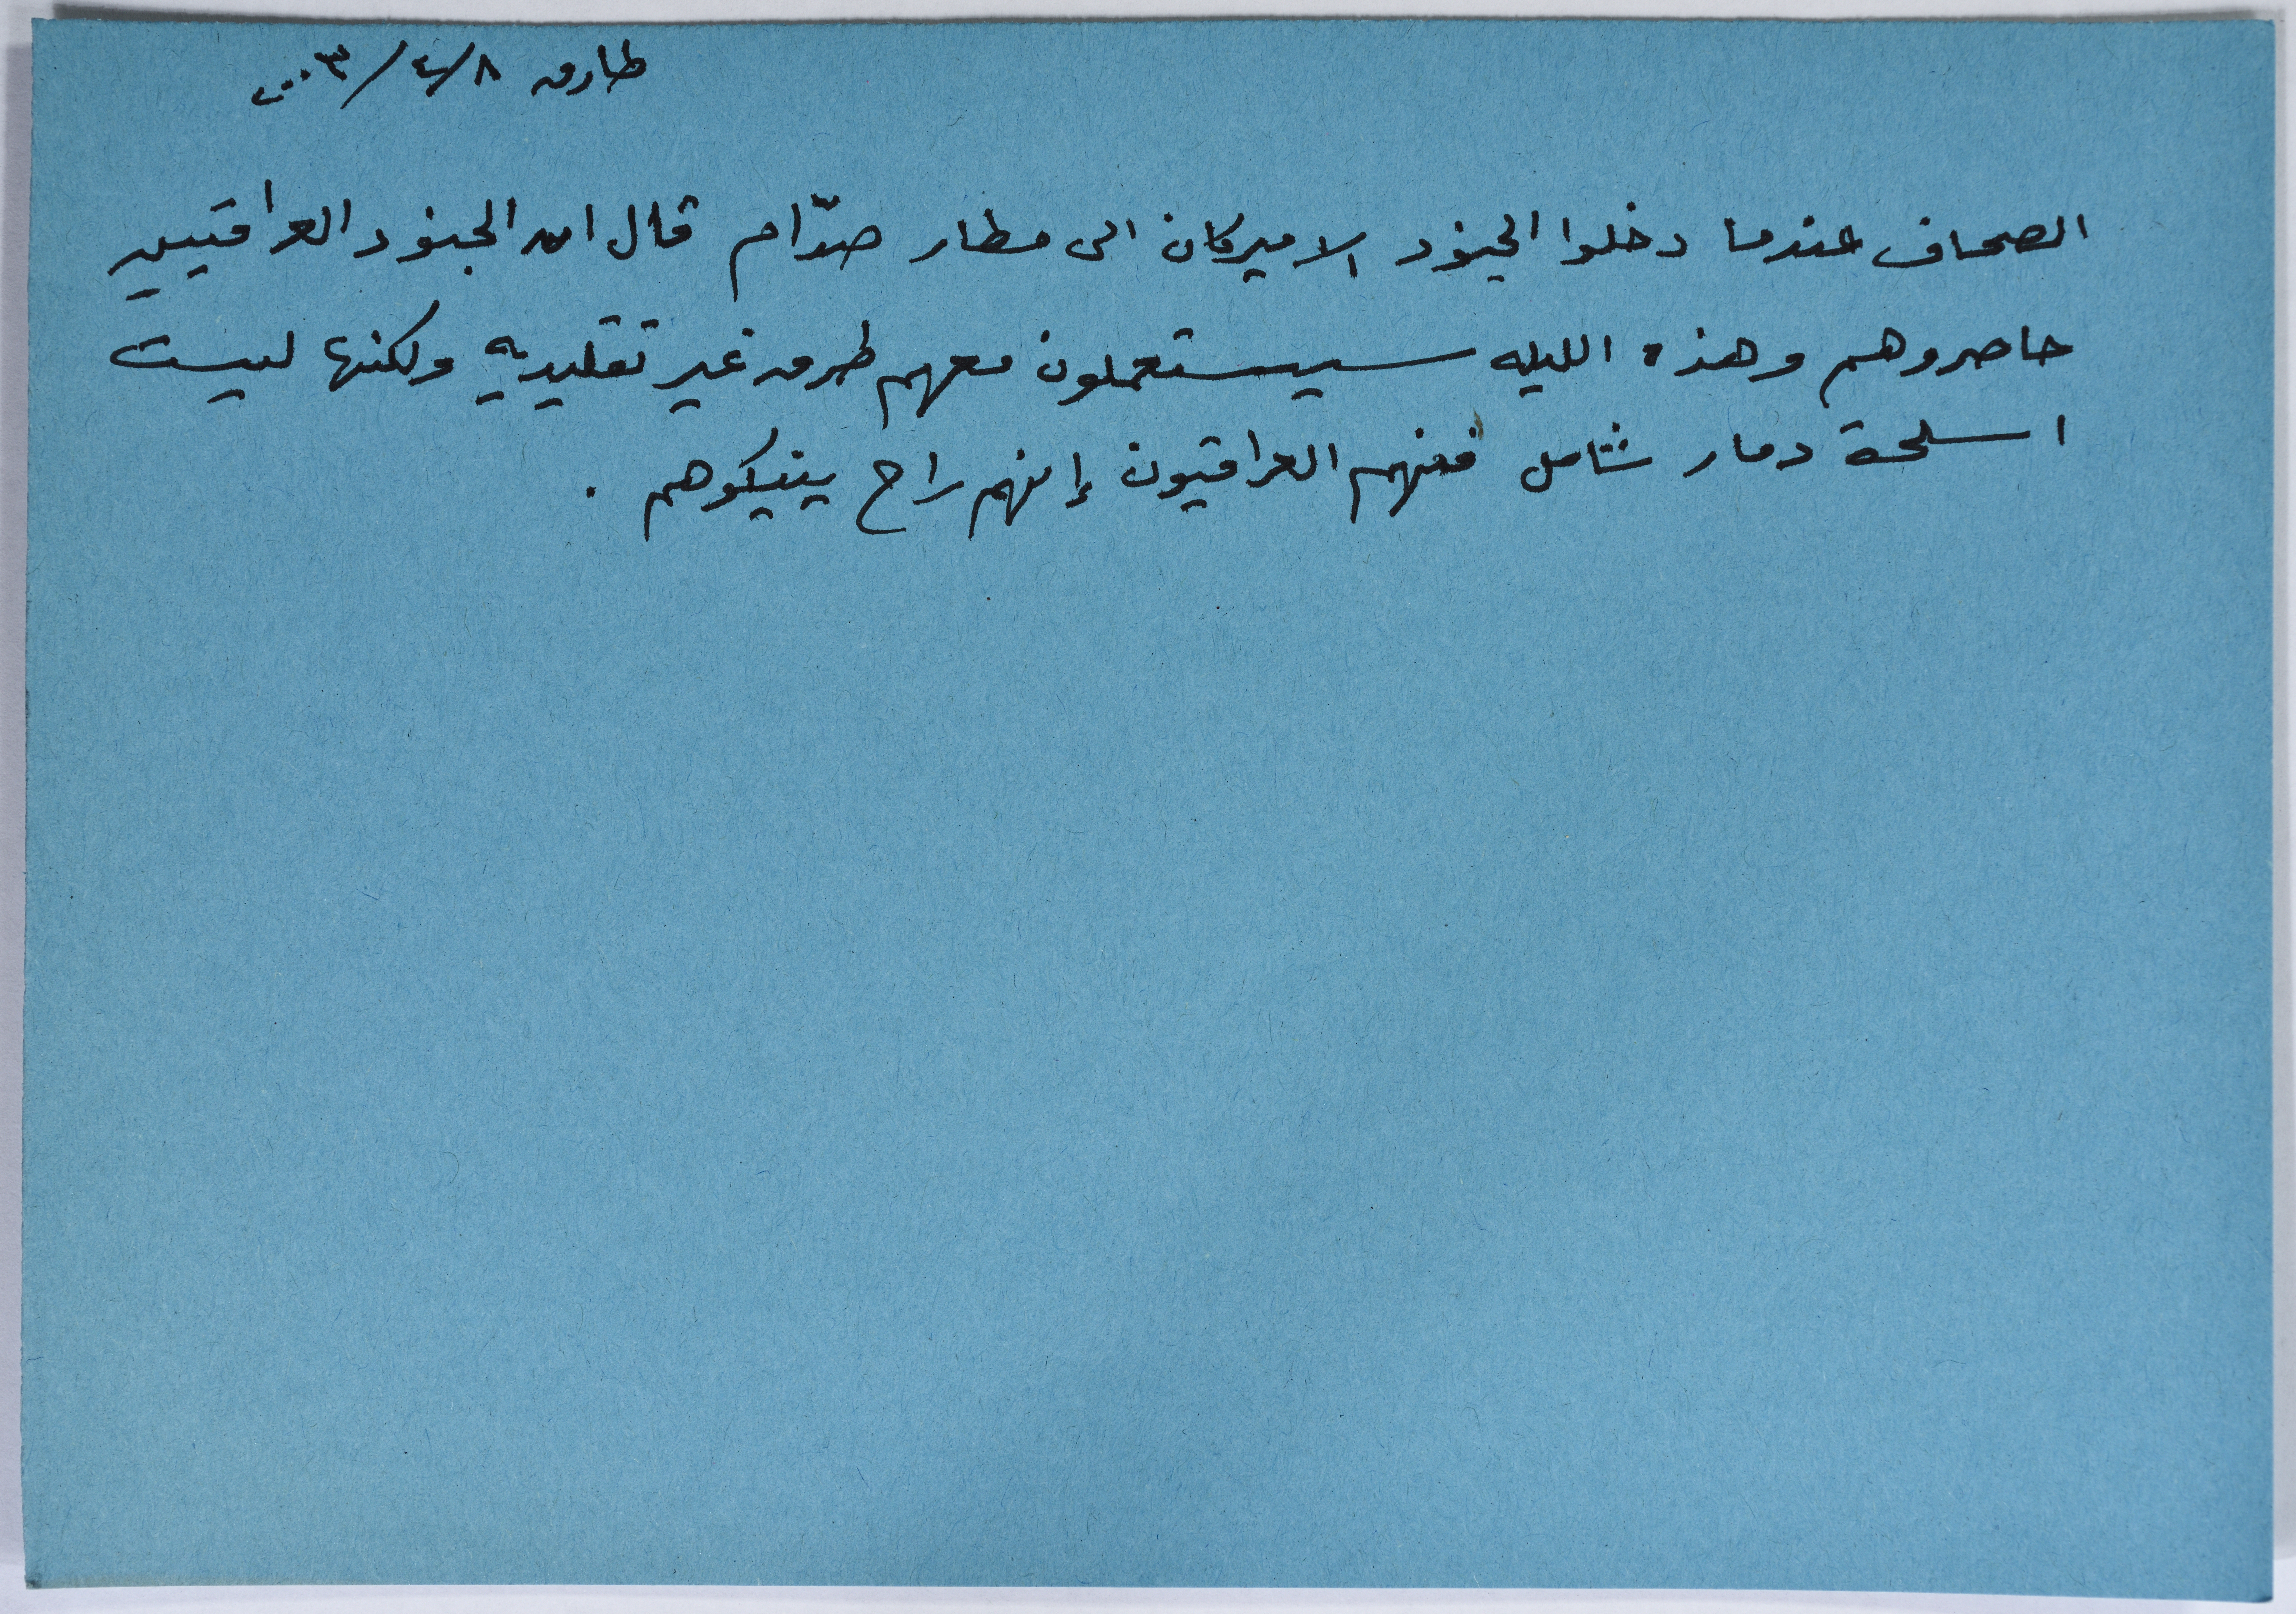 طارق ٨/٤/٢٠٠٣
الصحاف عندما دخلوا الجنود الاميركان الى مطار صدّام قال ان الجنود العراقيين
حاصروهم وهذه الليله سيستعملون معهم طرق غير تقليديه ولكنها ليست
اسلحة دمار شامل ففهم العراقيون إنهم راح ينيكوهم .